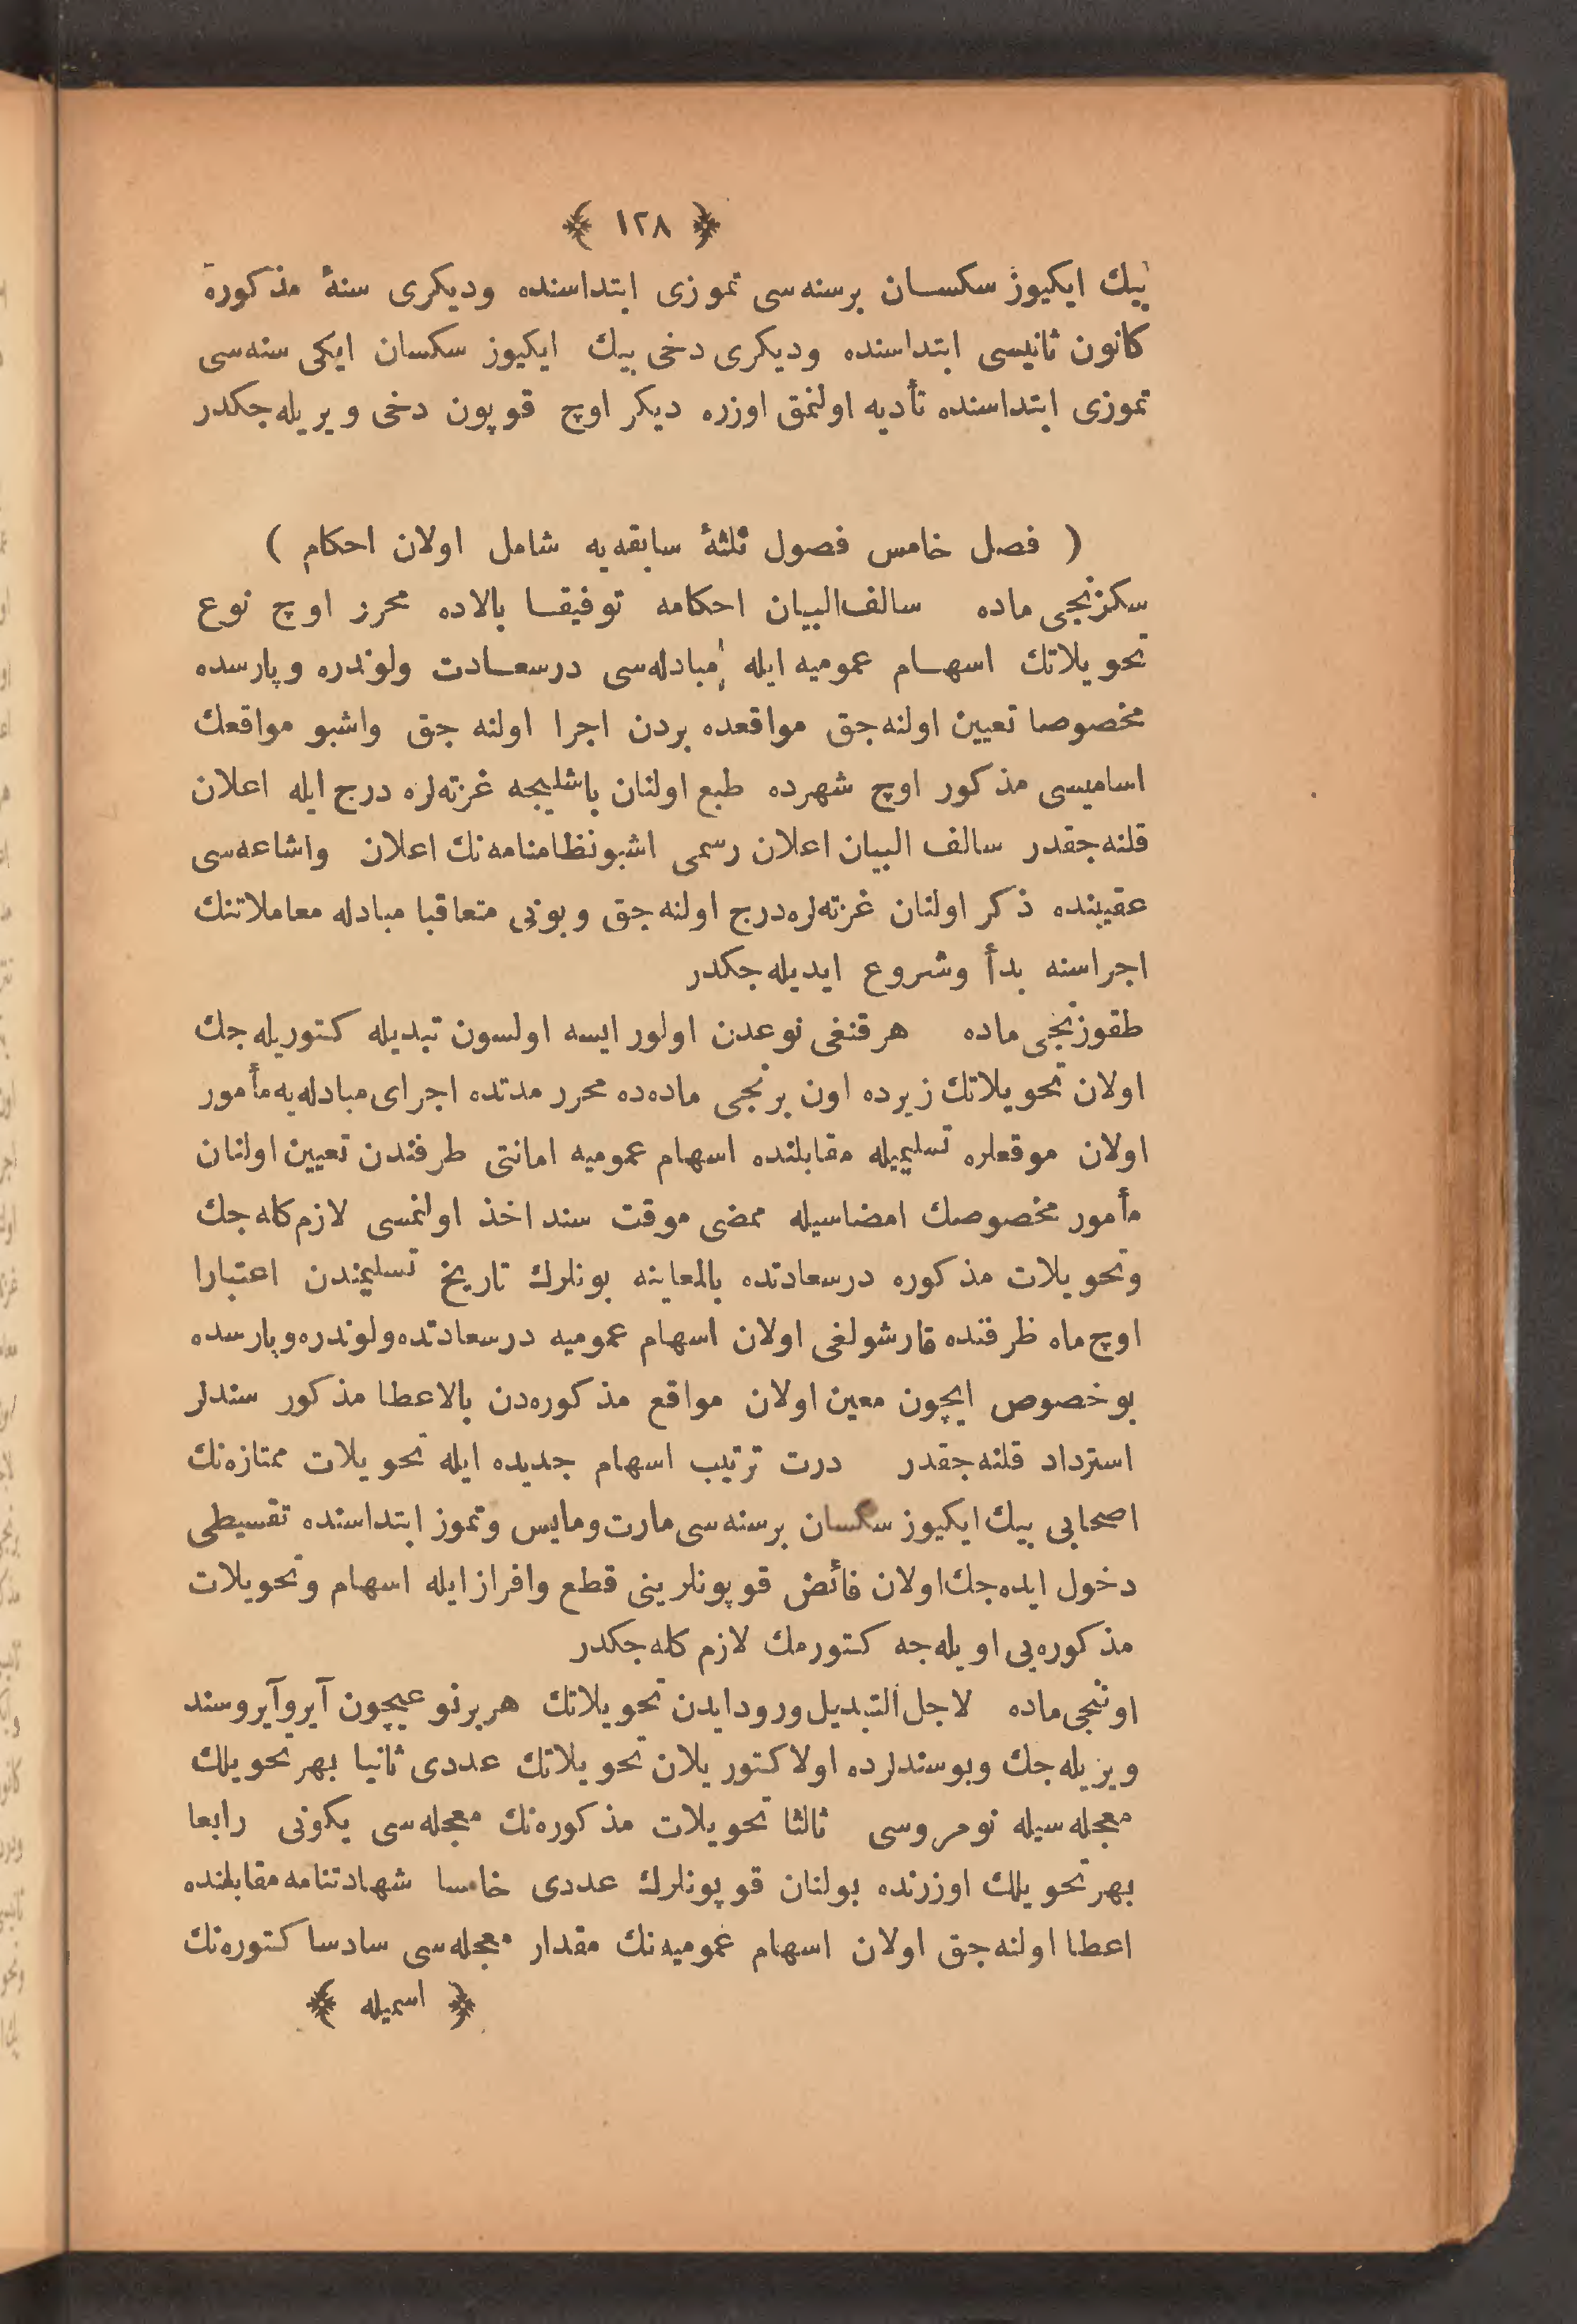 ﴿ ١٢٨ ﴾
بيك ايكيوز سكسان برسنه‌سى تموزى ابتداسنده وديكرى سنهٔ مذكوره
كانون ثانيسى ابتداسنده وديكرى دخى بيك ايكيوز سكسان ايكى سنه‌سى
تموزى ابتداسنده تأديه اولنمق اوزره ديكر اوچ قوپون دخى ويريله‌جكدر
( فصل خامس فصول ثلثهٔ سابقه‌يه شامل اولان احكام )
سكزنجى ماده سالف‌البيان احكامه توفيقا بالاده محرر اوچ نوع
تحويلاتك اسهام عموميه ايله مبادله‌سى درسعادت ولوندره وپارسده
مخصوصا تعيين اولنه‌جق مواقعده بردن اجرا اولنه جق واشبو مواقعك
اساميسى مذكور اوچ شهرده طبع اولنان باشليجه غزته‌لره درج ايله اعلان
قلنه‌جقدر سالف البيان اعلان رسمى اشبونظامنامه‌نك اعلان واشاعه‌سى
عقيبنده ذكر اولنان غزته‌لره‌درج اولنه‌جق وبونى متعاقبا مبادله معاملاتنك
اجراسنه بدأ وشروع ايديله‌جكدر
طقوزنجى ماده هرقنغى نوعدن اولور ايسه اولسون تبديله كتوريله‌جك
اولان تحويلاتك زيرده اون برنجى ماده‌ده محرر مدتده اجراى مبادله‌يه‌مأمور
اولان موقعلره تسليميله مقابلنده اسهام عموميه امانتى طرفندن تعيين اولنان
مأمور مخصوصك امضاسيله ممضى موقت سند اخذ اولنمسى لازم‌كله‌جك
وتحويلات مذكوره درسعادتده بالمعاينه بونلرك تاريخ تسليمندن اعتبارا
اوچ‌ماه ظرفنده قارشولغى اولان اسهام عموميه درسعادتده‌ولوندره‌وپارسده
بوخصوص ايچون معين اولان مواقع مذكوره‌دن بالاعطا مذكور سندلر
استرداد قلنه‌جقدر درت ترتيب اسهام جديده ايله تحويلات ممتازه‌نك
اصحابى بيك ايكيوز سكسان برسنه‌سى مارت‌ومايس وتموز ابتداسنده تقسيطى
دخول ايده‌جك‌اولان فائض قوپونلرينى قطع وافرازايله اسهام وتحويلات
مذكوره‌يى اويله‌جه كتورمك لازم كله‌جكدر
اوننجى ماده لاجل التبديل‌ورودايدن تحويلاتك هربرنوعيچون آيروآيروسند
ويريله‌جك وبوسندلرده اولاكتوريلان تحويلاتك عددى ثانيا بهرتحويلك
معجله‌سيله نومروسى ثالثا تحويلات مذكوره‌نك معجله‌سى يكونى رابعا
بهرتحويلك اوزرنده بولنان قوپونلرك عددى خامسا شهادتنامه‌مقابلنده
اعطا اولنه‌جق اولان اسهام عموميه‌نك مقدار معجله‌سى سادسا كتوره‌نك
﴿ اسميله ﴾